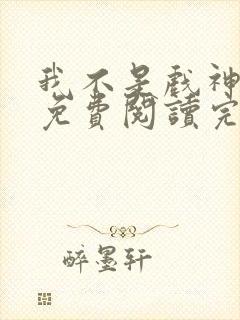 我不是戲神
免費閱讀完
醉墨轩